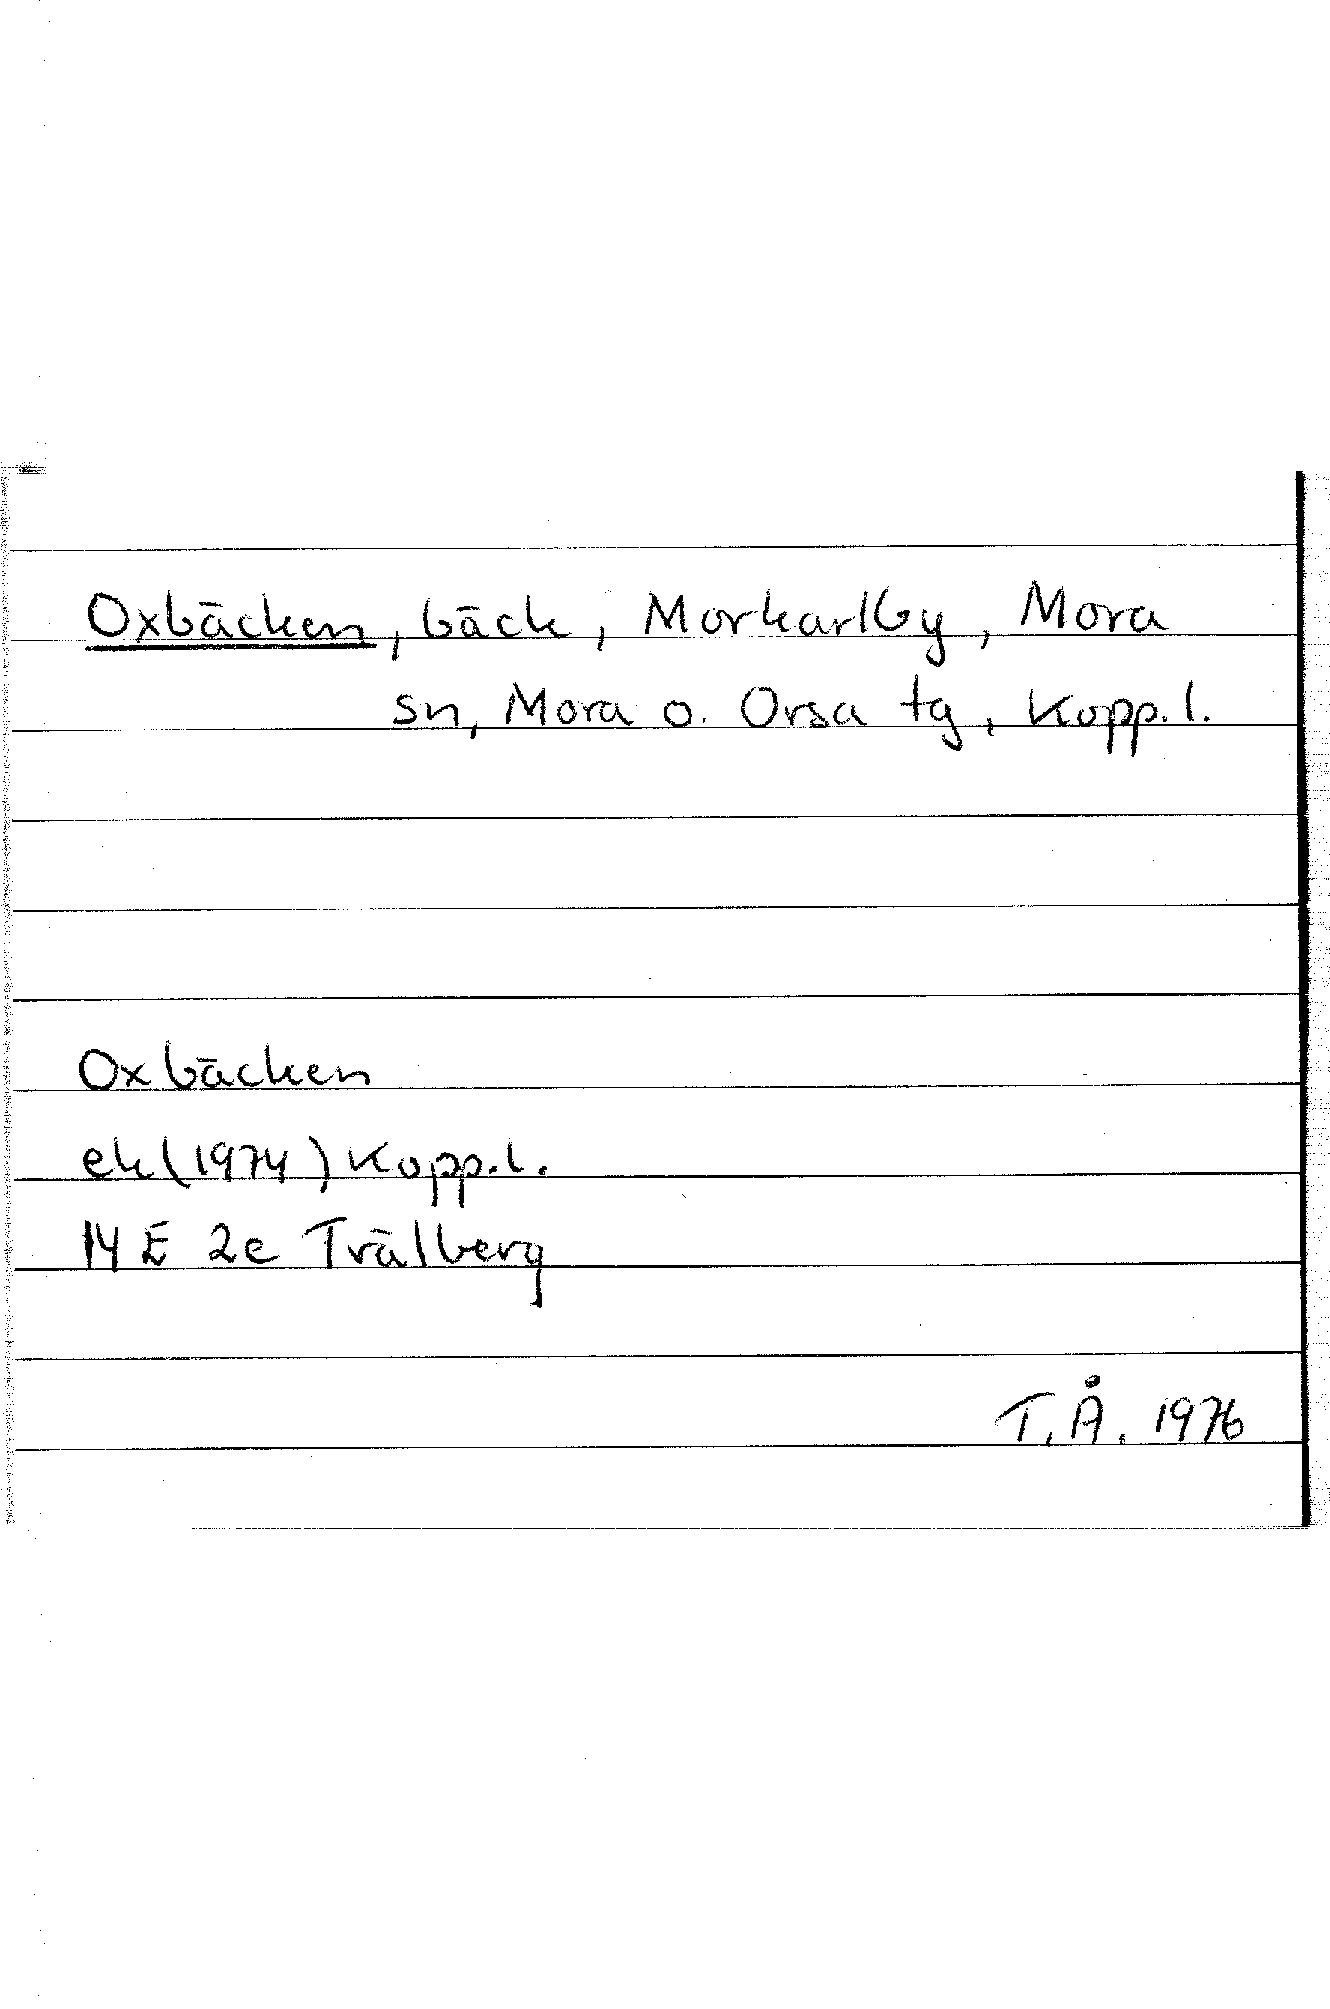 Oxbäcken, bäck, Morkarlby, Mora
sn, Mora o. Orsa tg, Kopp.l.
Oxbäcken
ek (1974) Kopp.l.
14 E 2e Trälberg
T.Å. 1976